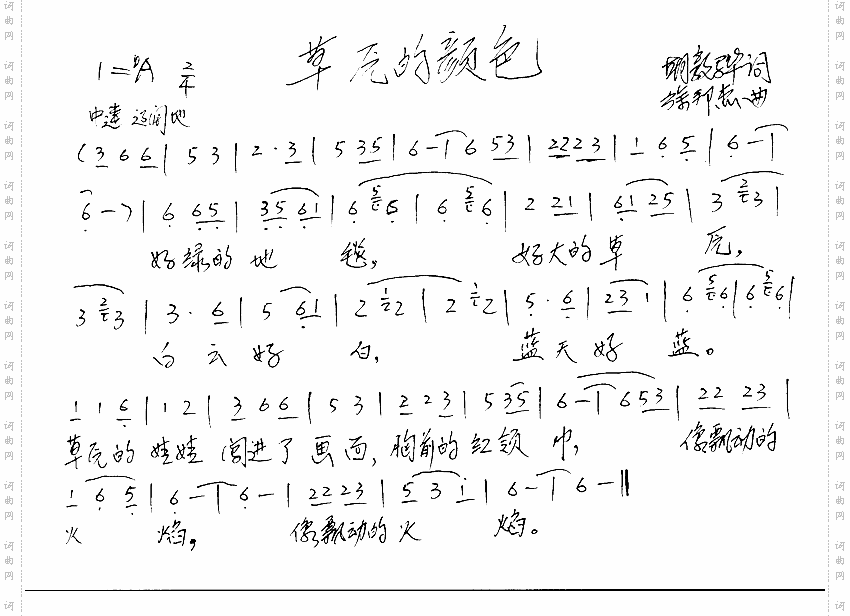 草原的颜色
1=♭A 2/4
胡敦骅词
徐邦杰曲
中速 辽阔地
(3 6 6 | 5 3 | 2 · 3 | 5 3 5 | 6 - | 6 5 3 | 2 2 2 3 | 1 6 5 | 6 - |
6 -) | 6 6 5 | 3 5 6 1 | 6 5 6 | 6 5 6 | 2 2 1 | 6 1 2 5 | 3 2 3 |
好绿的地 毯, 好大的草 原,
3 2 3 | 3 · 6 | 5 6 1 | 2 1 2 | 2 1 2 | 5 · 6 | 2 3 1 | 6 5 6 | 6 5 6 |
白云好 白, 蓝天好 蓝。
1 1 6 | 1 2 | 3 6 6 | 5 3 | 2 2 3 | 5 3 5 | 6 - | 6 5 3 | 2 2 2 3 |
草原的娃娃 闯进了画面, 胸前的红领 巾, 像飘动的
1 6 5 | 6 - | 6 - | 2 2 2 3 | 5 3 1 | 6 - | 6 - ‖
火 焰, 像飘动的火 焰。
词曲网